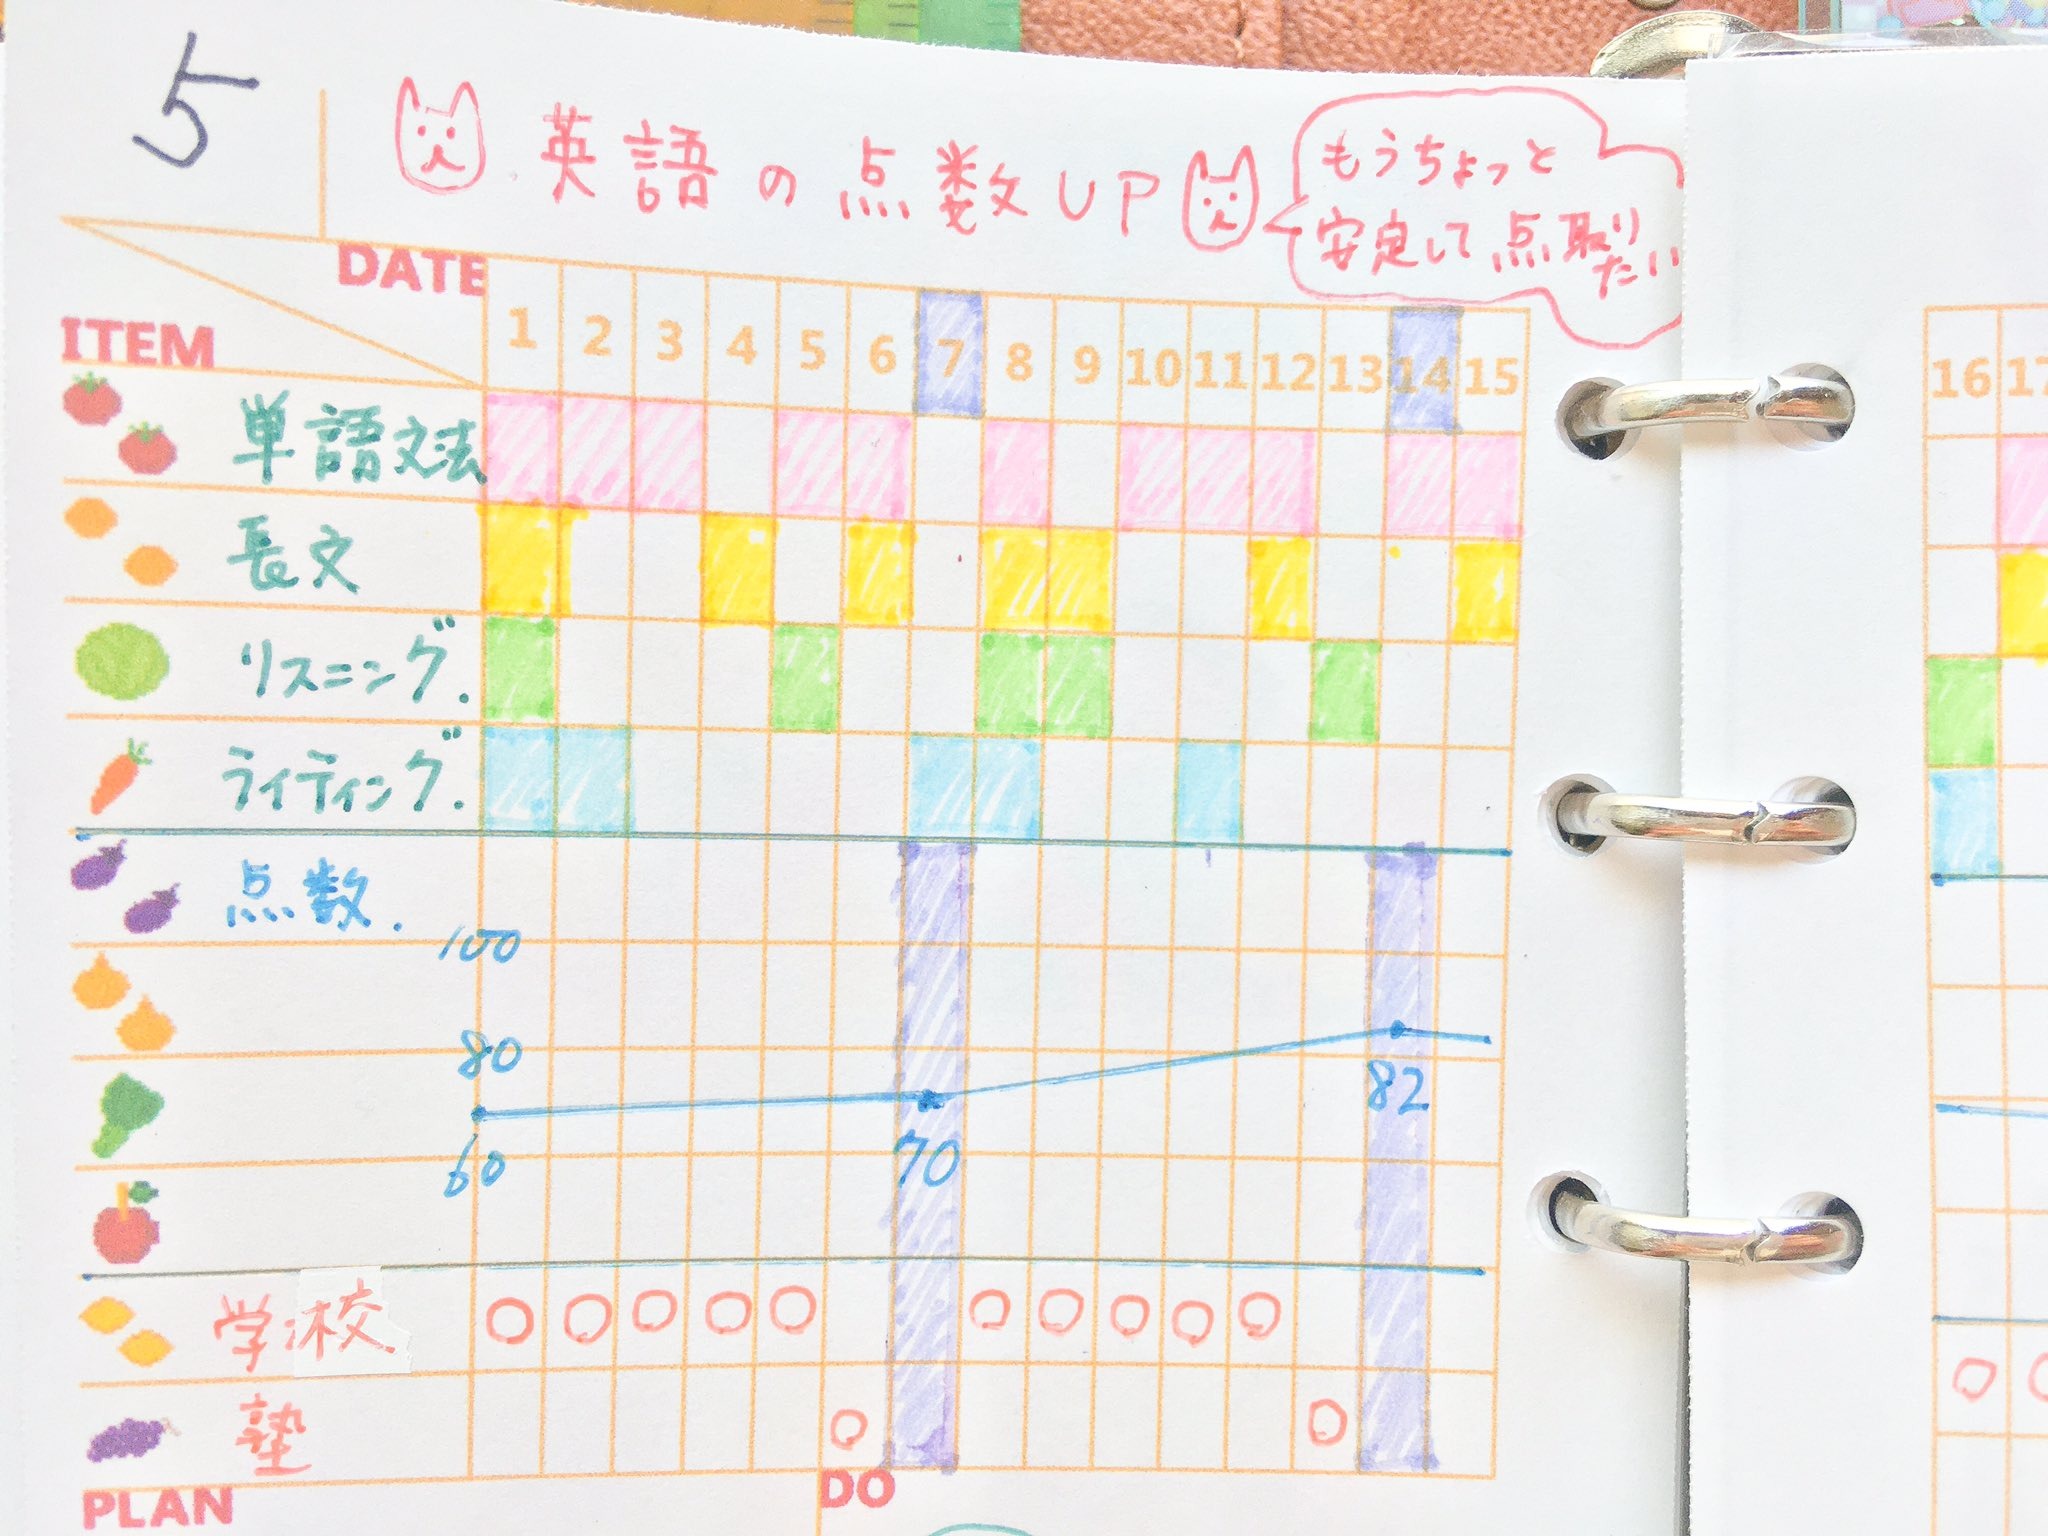 5
英語の点数UP
もうちょっと
安定して点取り
たい
DATE
ITEM
1 2 3 4 5 6 7 8 9 10 11 12 13 14 15
16 17
単語文法
長文
リスニング.
ライティング.
点数.
100
80
82
60
70
学校
塾
PLAN
DO